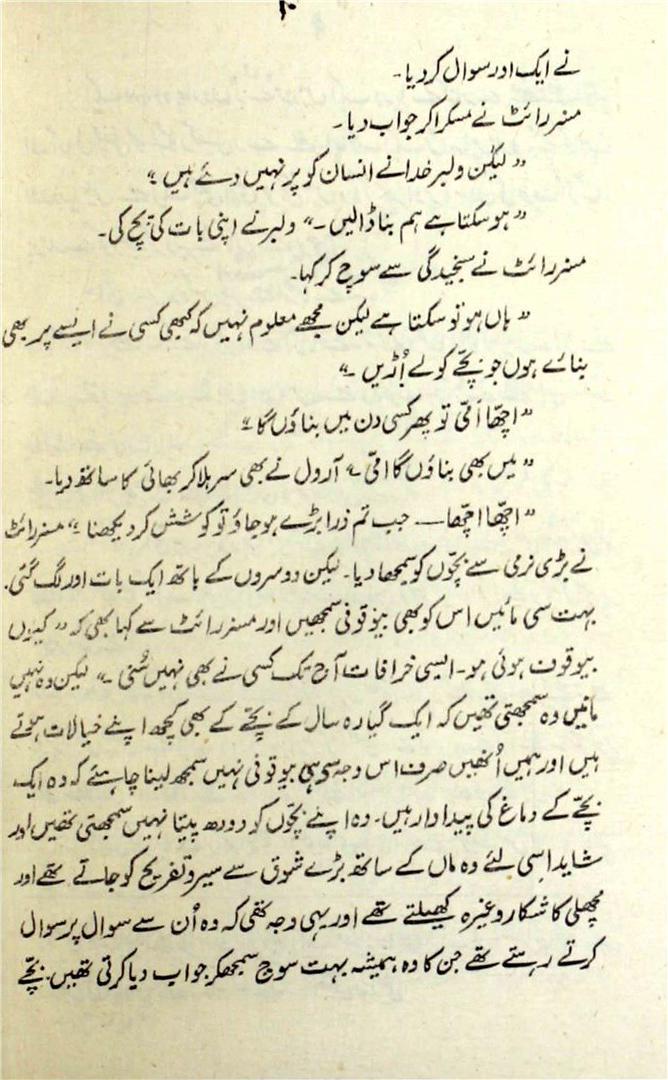 نے ایک اور سوال کر دیا۔
مسز رائٹ نے مسکرا کر جواب دیا۔
”لیکن ولبر خدا نے انسان کو پر نہیں دئے ہیں“
”ہو سکتا ہے ہم بنا ڈالیں۔“ ولبر نے اپنی بات کی پچ کی۔
مسز رائٹ نے سنجیدگی سے سوچ کر کہا۔
”ہاں ہو تو سکتا ہے لیکن مجھے معلوم نہیں کہ کبھی کسی نے ایسے پر بھی
بنائے ہوں جو بچّے کو لے اُڑیں“
”اچھّا اَمّی تو پھر کسی دن میں بناؤں گا“
”میں بھی بناؤں گا امّی“ آرول نے بھی سر ہلا کر بھائی کا ساتھ دیا۔
”اچھّا اچھّا — جب تم ذرا بڑے ہو جاؤ تو کوشش کر دیکھنا“ مسز رائٹ
نے بڑی نرمی سے بچّوں کو سمجھا دیا۔ لیکن دوسروں کے ہاتھ ایک بات اور لگ گئی۔
بہت سی مائیں اس کو بھی بیوقوفی سمجھیں اور مسز رائٹ سے کہا بھی کہ ”کیوں
بیوقوف ہوئی ہو۔ ایسی خرافات آج تک کسی نے بھی نہیں سُنی“ لیکن وہ نہیں
مانیں وہ سمجھتی تھیں کہ ایک گیارہ سال کے بچّے کے بھی کچھ اپنے خیالات ہوتے
ہیں اور ہمیں اُنھیں صرف اس وجہ سے ہی بیوقوفی نہیں سمجھ لینا چاہئے کہ وہ ایک
بچّے کے دماغ کی پیداوار ہیں۔ وہ اپنے بچّوں کو دودھ پیتا نہیں سمجھتی تھیں اور
شاید اسی لئے وہ ماں کے ساتھ بڑے شوق سے سیر و تفریح کو جاتے تھے اور
مچھلی کا شکار وغیرہ کھیلتے تھے اور یہی وجہ تھی کہ وہ اُن سے سوال پر سوال
کرتے رہتے تھے جن کا وہ ہمیشہ بہت سوچ سمجھکر جواب دیا کرتی تھیں۔ بچّے